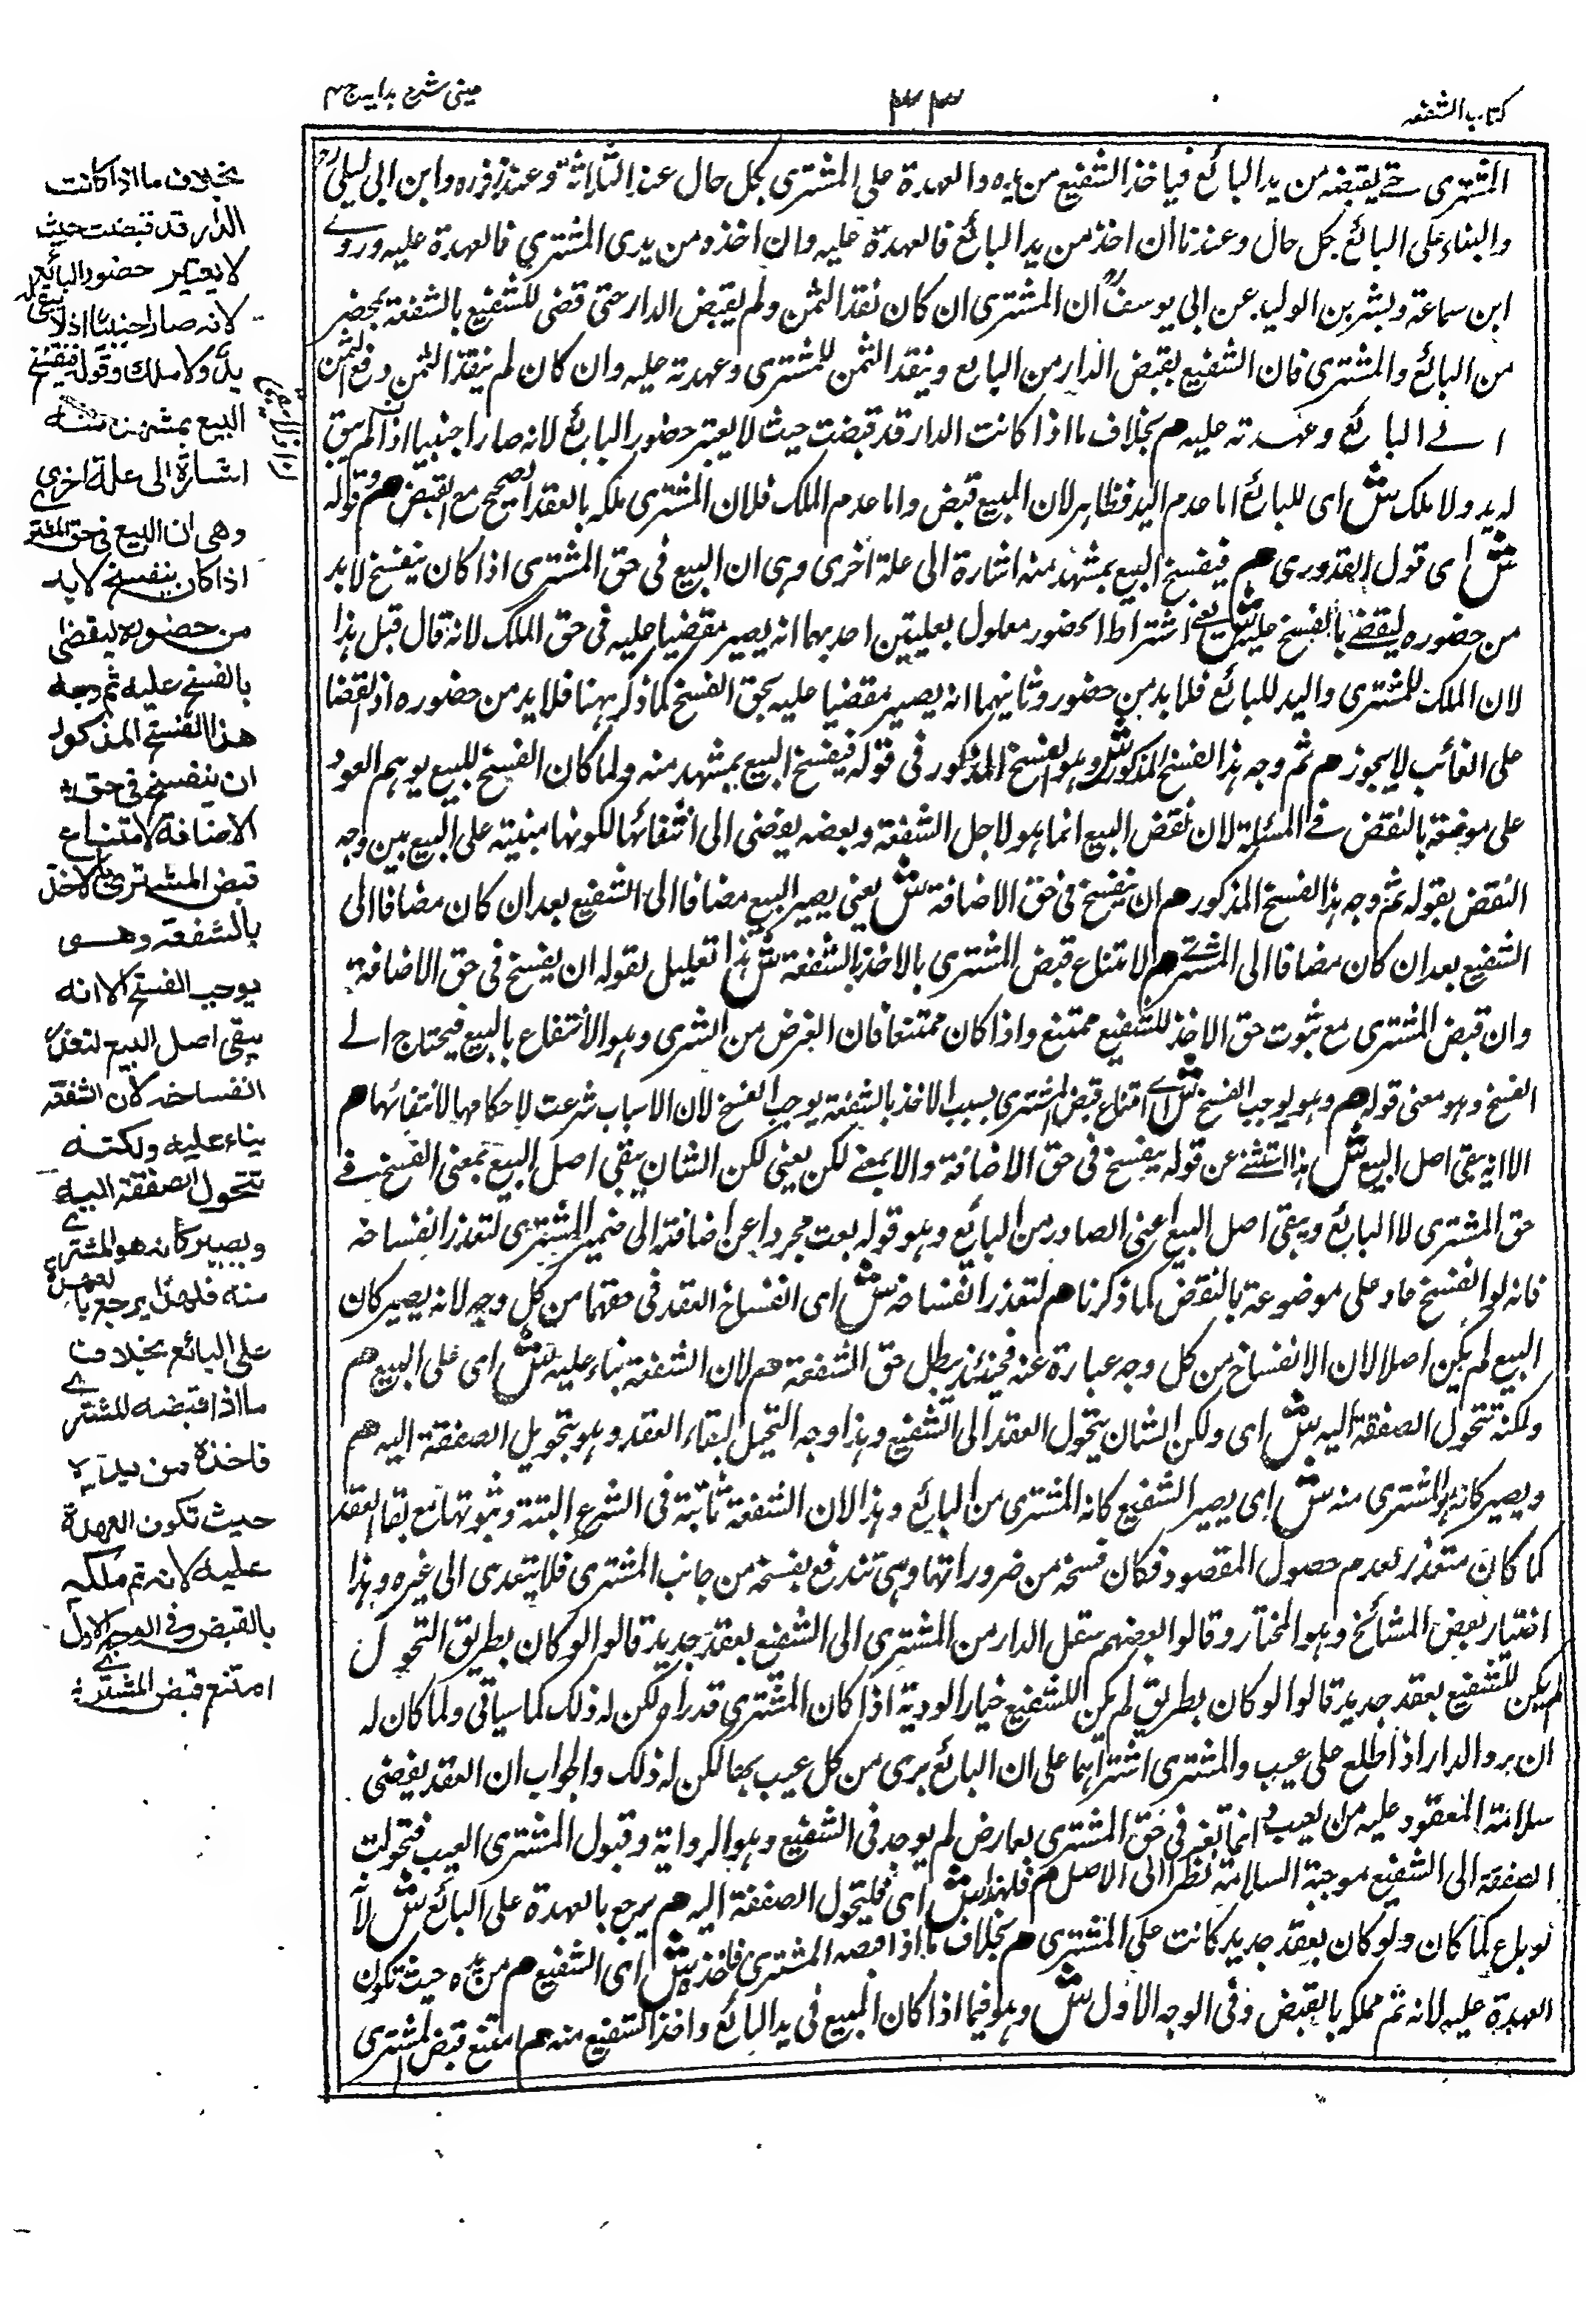 كتاب الشفعة
٣٣٤
عینی شرح ہدایہ ج ٣
المشتری حتے یقبضه من ید البائع فیاخذ الشفیع من یده والعهدة علی المشتری بکل حال عند الثلاثة وعند زفر وابن ابی لیلی
والبناء علی البائع بکل حال وعندنا ان اخذ من ید البائع فالعهدة علیه وان اخذه من یدی المشتری فالعهدة علیه وروے
ابن سماعة وبشر بن الولید عن ابی یوسف ان المشتری ان کان نقد الثمن ولم یقبض الدار حتی قضی للشفیع بالشفعة بحضر
من البائع والمشتری فان الشفیع یقبض الدار من البایع وینقد الثمن للمشتری وعهدته علیه وان کان لم ینقد الثمن دفع الثمن
الے البائع وعهدته علیه هم بخلاف ما اذا کانت الدار قد قبضت حیث لا یعتبر حضور البائع لانه صار اجنبیا اذ لم یبق
له ید ولا ملک ش ای للبائع اما عدم الید فظاهر لان المبیع قبض واما عدم الملک فلان المشتری ملکه بالعقد الصحیح مع القبض هم وقوله
ش ای قول القدوری هم فیفسخ البیع بمشهد منه اشارة الی علة اخری وهی ان البیع فی حق المشتری اذا کان ینفسخ لا بد
من حضوره لیقضے بالفسخ علیه ش یعنے اشتراط الحضور معلول بعلیتین احدهما انه یصیر مقضیا علیه فی حق الملک لانه قال قبل هذا
لان الملک للمشتری والید للبائع فلا بد من حضور وثانیهما انه یصیر مقضیا علیه بحق الفسخ کما ذکر ههنا فلا بد من حضوره اذ القضا
علی الغائب لا یجوز هم ثم وجه هذا الفسخ المذکور ش وهو الفسخ المذکور فی قوله فیفسخ البیع بمشهد منه ولما کان الفسخ للبیع یوهم العود
علی موضعه بالنقض فے المسئلة لان نقض البیع انما هو لاجل الشفعة وبعضه یفضی الی انتفائها لکونها مبنیة علی البیع بین وجه
النقض بقوله ثم وجه هذا الفسخ المذکور هم ان ینفسخ فی حق الاضافة ش یعنی یصیر البیع مضافا الی الشفیع بعد ان کان مضافا الی
الشفیع بعد ان کان مضافا الی المشترے هم لامتناع قبض المشتری بالاخذ بالشفعة ش هذا تعلیل بقوله ان یفسخ فی حق الاضافة
وان قبض المشتری مع ثبوت حق الاخذ للشفیع ممتنع واذا کان ممتنعا فان الغرض من الشری وهو الانتفاع بالبیع فیحتاج الے
الفسخ وهو معنی قوله هم وهو یوجب الفسخ ش اے امتناع قبض المشتری بسبب الاخذ بالشفعة یوجب الفسخ لان الاسباب شرعت لاحکامها لانتفائها هم
الا انه یبقی اصل البیع ش هذا استثنے عن قوله ینفسخ فی حق الاضافة والا بمعنے لکن یعنی لکن الشان یبقی اصل البیع بمعنی الفسخ فے
حق المشتری لا البائع ویبقی اصل البیع اعنی الصادر من البائع وهو قوله بعت مجردا عن اضافته الی ضمیر المشتری لتعذر انفساخه
فانه لو انفسخ عاد علی موضوعه بالنقض کما ذکرنا هم لتعذر انفساخه ش ای انفساخ العقد فی حقها من کل وجه لانه یصیر کان
البیع لم یکن اصلا لان الانفساخ من کل وجه عبارة عنه فحینئذ یبطل حق الشفعة هم لان الشفعة بناء علیه ش ای علی البیع هم
ولکنه تتحول الصفقة الیه ش ای ولکن الشان یتحول العقد الی الشفیع وهذا وجه التحیل لبقاء العقد وهو بتحویل الصفقة الیه هم
ویصیر کانه هو المشتری منه ش ای یصیر الشفیع کانه المشتری من البائع وهذا لان الشفعة ثابتة فی الشرع البتة وثبوتها مع بقاء العقد
کما کان متعذر لعدم حصول المقصود فکان فسخه من ضروراتها وهی تندفع بفسخه من جانب المشتری فلا یتعدی الی غیره وهذا
اختیار بعض المشائخ وهو المختار وقالوا بعضهم ینتقل الدار من المشتری الی الشفیع بعقد جدید قالوا لو کان بطریق التحول
لم یکن للشفیع بعقد جدید قالوا لو کان بطریق لم یکن للشفیع خیار الودیة اذا کان المشتری قد راه ولکن له ذلک کما سیاتی ولما کان له
ان یرد الدار اذا اطلع علی عیب والمشتری اشتراهما علی ان البائع بری من کل عیب بها لکن له ذلک والجواب ان العقد یفضی
سلامة المعقود علیه من العیب وانما تغیر فی حق المشتری بعارض لم یوجد فی الشفیع وهو الروایة وقبول المشتری العیب فتحولت
الصفقة الی الشفیع موجبة السلامة نظرا الی الاصل هم فلهذا ش ای فلیتحول الصفقة الیه هم یرجع بالعهدة علی البائع ش لانه
لو باع کما کان ولو کان بعقد جدید کانت علی المشتری هم بخلاف ما اذا قبضه المشتری فاخذه ش ای الشفیع هم من یده حیث تکون
العهدة علیه لانه تم ملکه بالقبض وفی الوجه الاول ش وهو فیما اذا کان المبیع فی ید البائع واخذ الشفیع منه هم امتنع قبض المشتری
بخلاف ما اذا کانت
الدار قد قبضت حیث
لا یعتبر حضور البائع
لانه صار اجنبیا اذ لا یبقی له
ید ولا ملک وقوله فیفسخ
البیع بمشهد منه
اشارة الی علة اخری
وهی ان البیع فی حق المشتری
اذا کان ینفسخ لا بد
من حضوره لیقضی
بالفسخ علیه ثم وجه
هذا الفسخ المذکور
ان ینفسخ فی حق
الاضافة لامتناع
قبض المشتری بالاخذ
بالشفعة وهو
یوجب الفسخ الا انه
یبقی اصل البیع لتعذر
انفساخه لان الشفعة
بناء علیه ولکنه
تتحول الصفقة الیه
ویصیر کانه هو المشترے
منه فلهذا یرجع بالعهدة
علی البائع بخلاف
ما اذا قبضه المشترے
فاخذه من یده
حیث تکون العهدة
علیه لانه تم ملکه
بالقبض وفی الوجه الاول
امتنع قبض المشترے